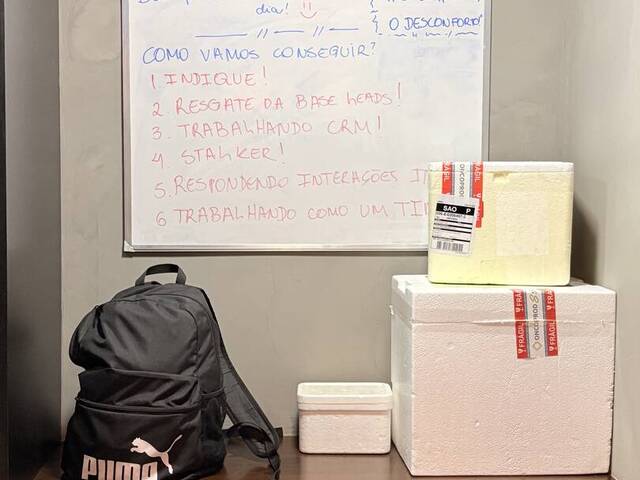 dia!
O DESCONFORTO
COMO VAMOS CONSEGUIR?
1. INDIQUE!
2. RESGATE DA BASE LEADS!
3. TRABALHANDO CRM!
4. STALKER!
5. RESPONDENDO INTERAÇÕES
6 TRABALHANDO COMO UM
FRÁGIL
ONCOPROD
SAO P
FRÁGIL
ONCOPROD
FRÁGIL
PUMA